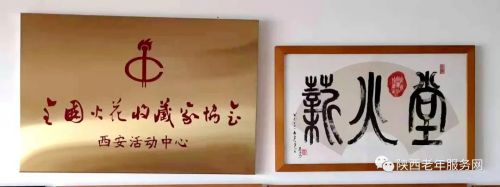 全国火花收藏家协会
西安活动中心
薪火堂
陕西老年服务网